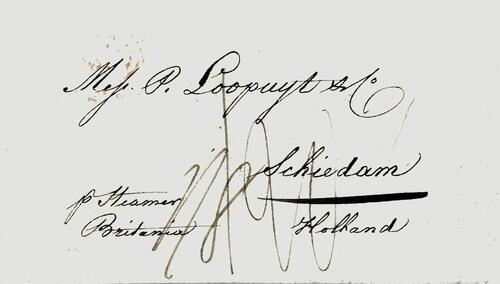 Mess. P. Loopuyt & Co
Schiedam
p Steamer
Britania
Holland